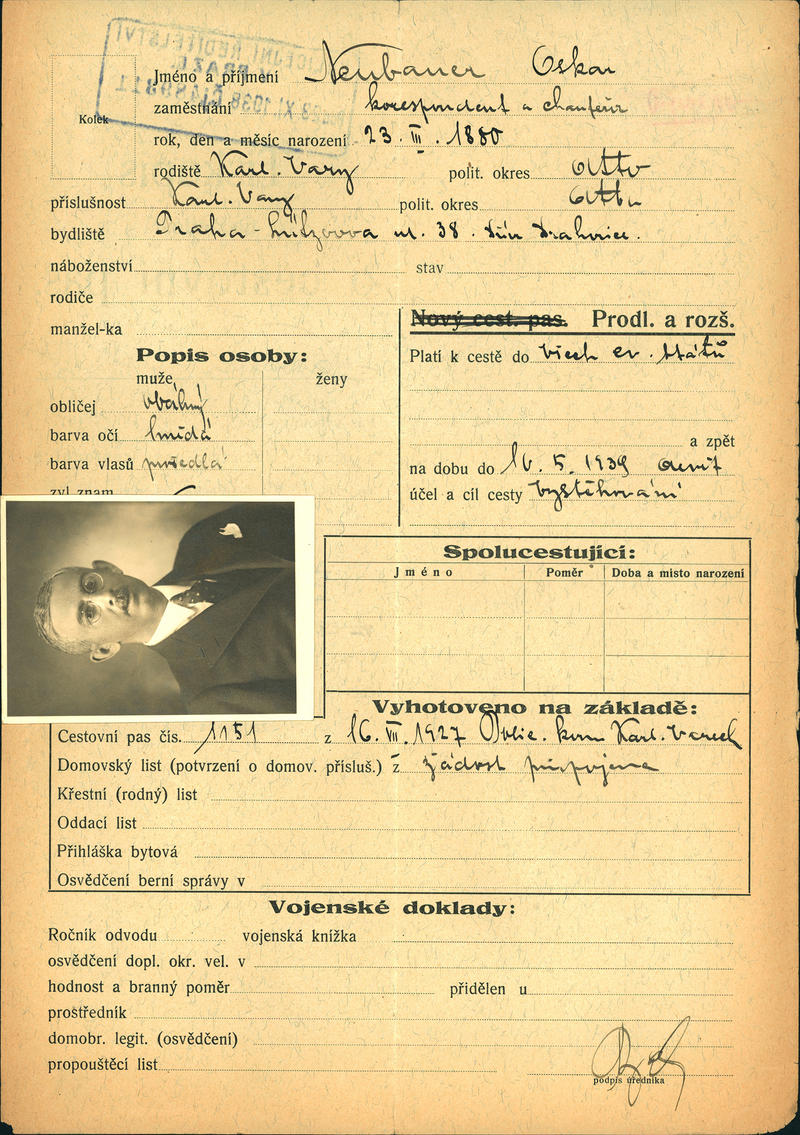 Kolek
Jméno a příjmení Neubauer Oskar
zaměstnání korespondent a chauffeur
rok, den a měsíc narození 23. III. 1880
rodiště Karl. Vary polit. okres
příslušnost Karl. Vary polit. okres
bydliště Praha - Lützovova ul. 38.
náboženství stav
rodiče
manžel-ka
Nový cest. pas. Prodl. a rozš.
Popis osoby:
Platí k cestě do všech ev. států
muže ženy
obličej oválný
barva očí hnědá
barva vlasů prošedlá
zvl znam
a zpět
na dobu do 16. 5. 1939
účel a cíl cesty vystěhování
Spolucestující:
Jméno Poměr Doba a misto narození
Vyhotoveno na základě:
Cestovní pas čís. 1151 z 16. VII. 1927 Polic. kom Karl. Varech
Domovský list (potvrzení o domov. přísluš.) z žádost připojena
Křestní (rodný) list
Oddací list
Přihláška bytová
Osvědčení berní správy v
Vojenské doklady:
Ročník odvodu vojenská knížka
osvědčení dopl. okr. vel. v
hodnost a branný poměr přidělen u
prostředník
domobr. legit. (osvědčení)
propouštěcí list
podpis úředníka